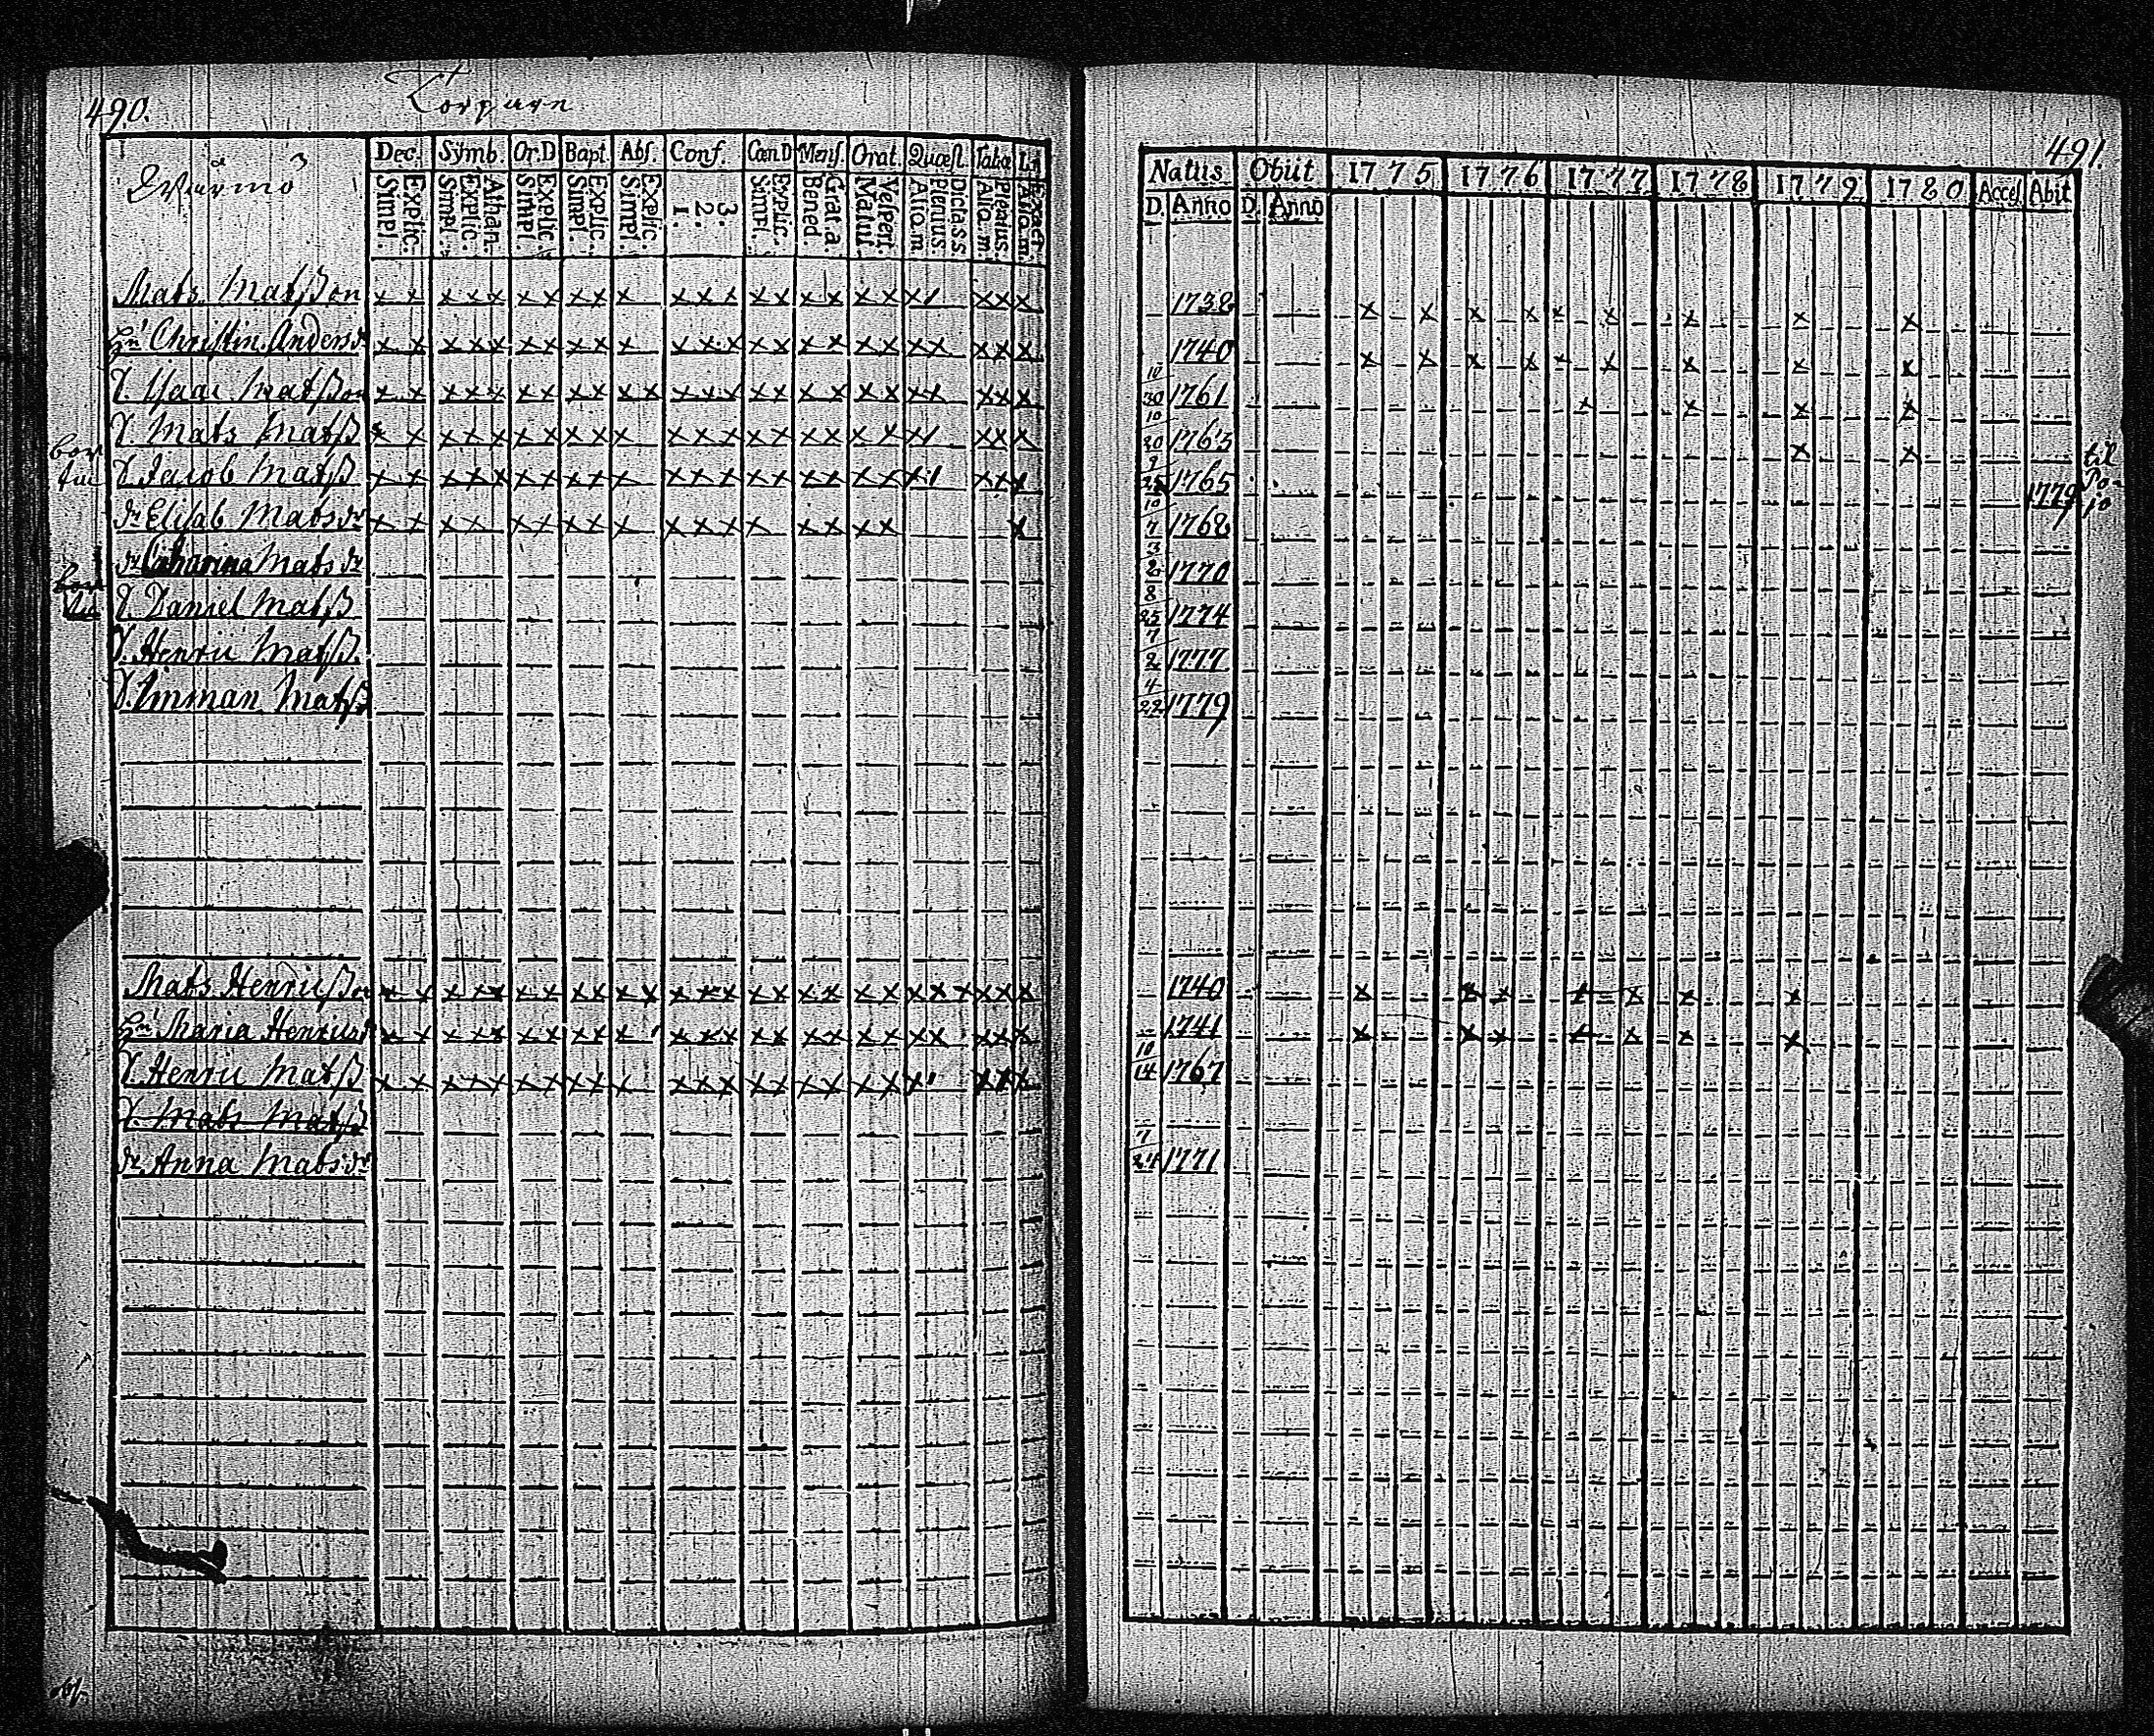 490.
Torparn
Dec. Symb. Or.D Bapt. Abs. Conf. Cæn.D Mens. Orat. Quæst. Taba
Simpl. Explic. Simpl. Explic. Athan. Simpl. Explic. Simpl. Explic. Simpl. Explic. 1. 2. 3. Simpl. Explic. Bened. Grat.a. Matut. Vespert. Aſſa.m. Plenius. Dicta S S Aſſa.m. Plenius.
Mats Matsson x x x x x x x x x x x x x x x x x x x x x x x
Hu Christin Anders dr x x x x x x x x x x x x x x x x x x x x x x x
S. Isaac Matsson x x x x x x x x x x x x x x x x x x x x x x x x
S. Mats Matss x x x x x x x x x x x x x x x x x x x x x x x
S. Jacob Matss x x x x x x x x x x x x x x x x x x x x x x x
dr Elisab Mats dr x x x x x x x x x x x x x x x x x x
dr Catharina Mats dr
S. Daniel Matss
S. Henric Matss
S. Imman Matss
Mats Henricsson x x x x x x x x x x x x x x x x x x x x x x x x x
Hu Maria Henrics x x x x x x x x x x x x x x x x x x x x x x x
S. Henric Matss x x x x x x x x x x x x x x x x x x x x x x
S. Mats Matss
dr. Anna Mats dr
491.
Natus Obiit 1775 1776 1777 1778 1779 1780 Acces Abit
D. Anno D. Anno
1738 x x x x x x x x x
1740 x x x x x x x x x
10/30 1761 x x x x
10/20 1763 x x
1765 1779 til Pojo
10/7 1768
3/2 1770
8/25 1774
7/2 1777
4/22 1779
1740 x x x x x x x
1741 x x x x x x x
10/14 1767
7/24 1771